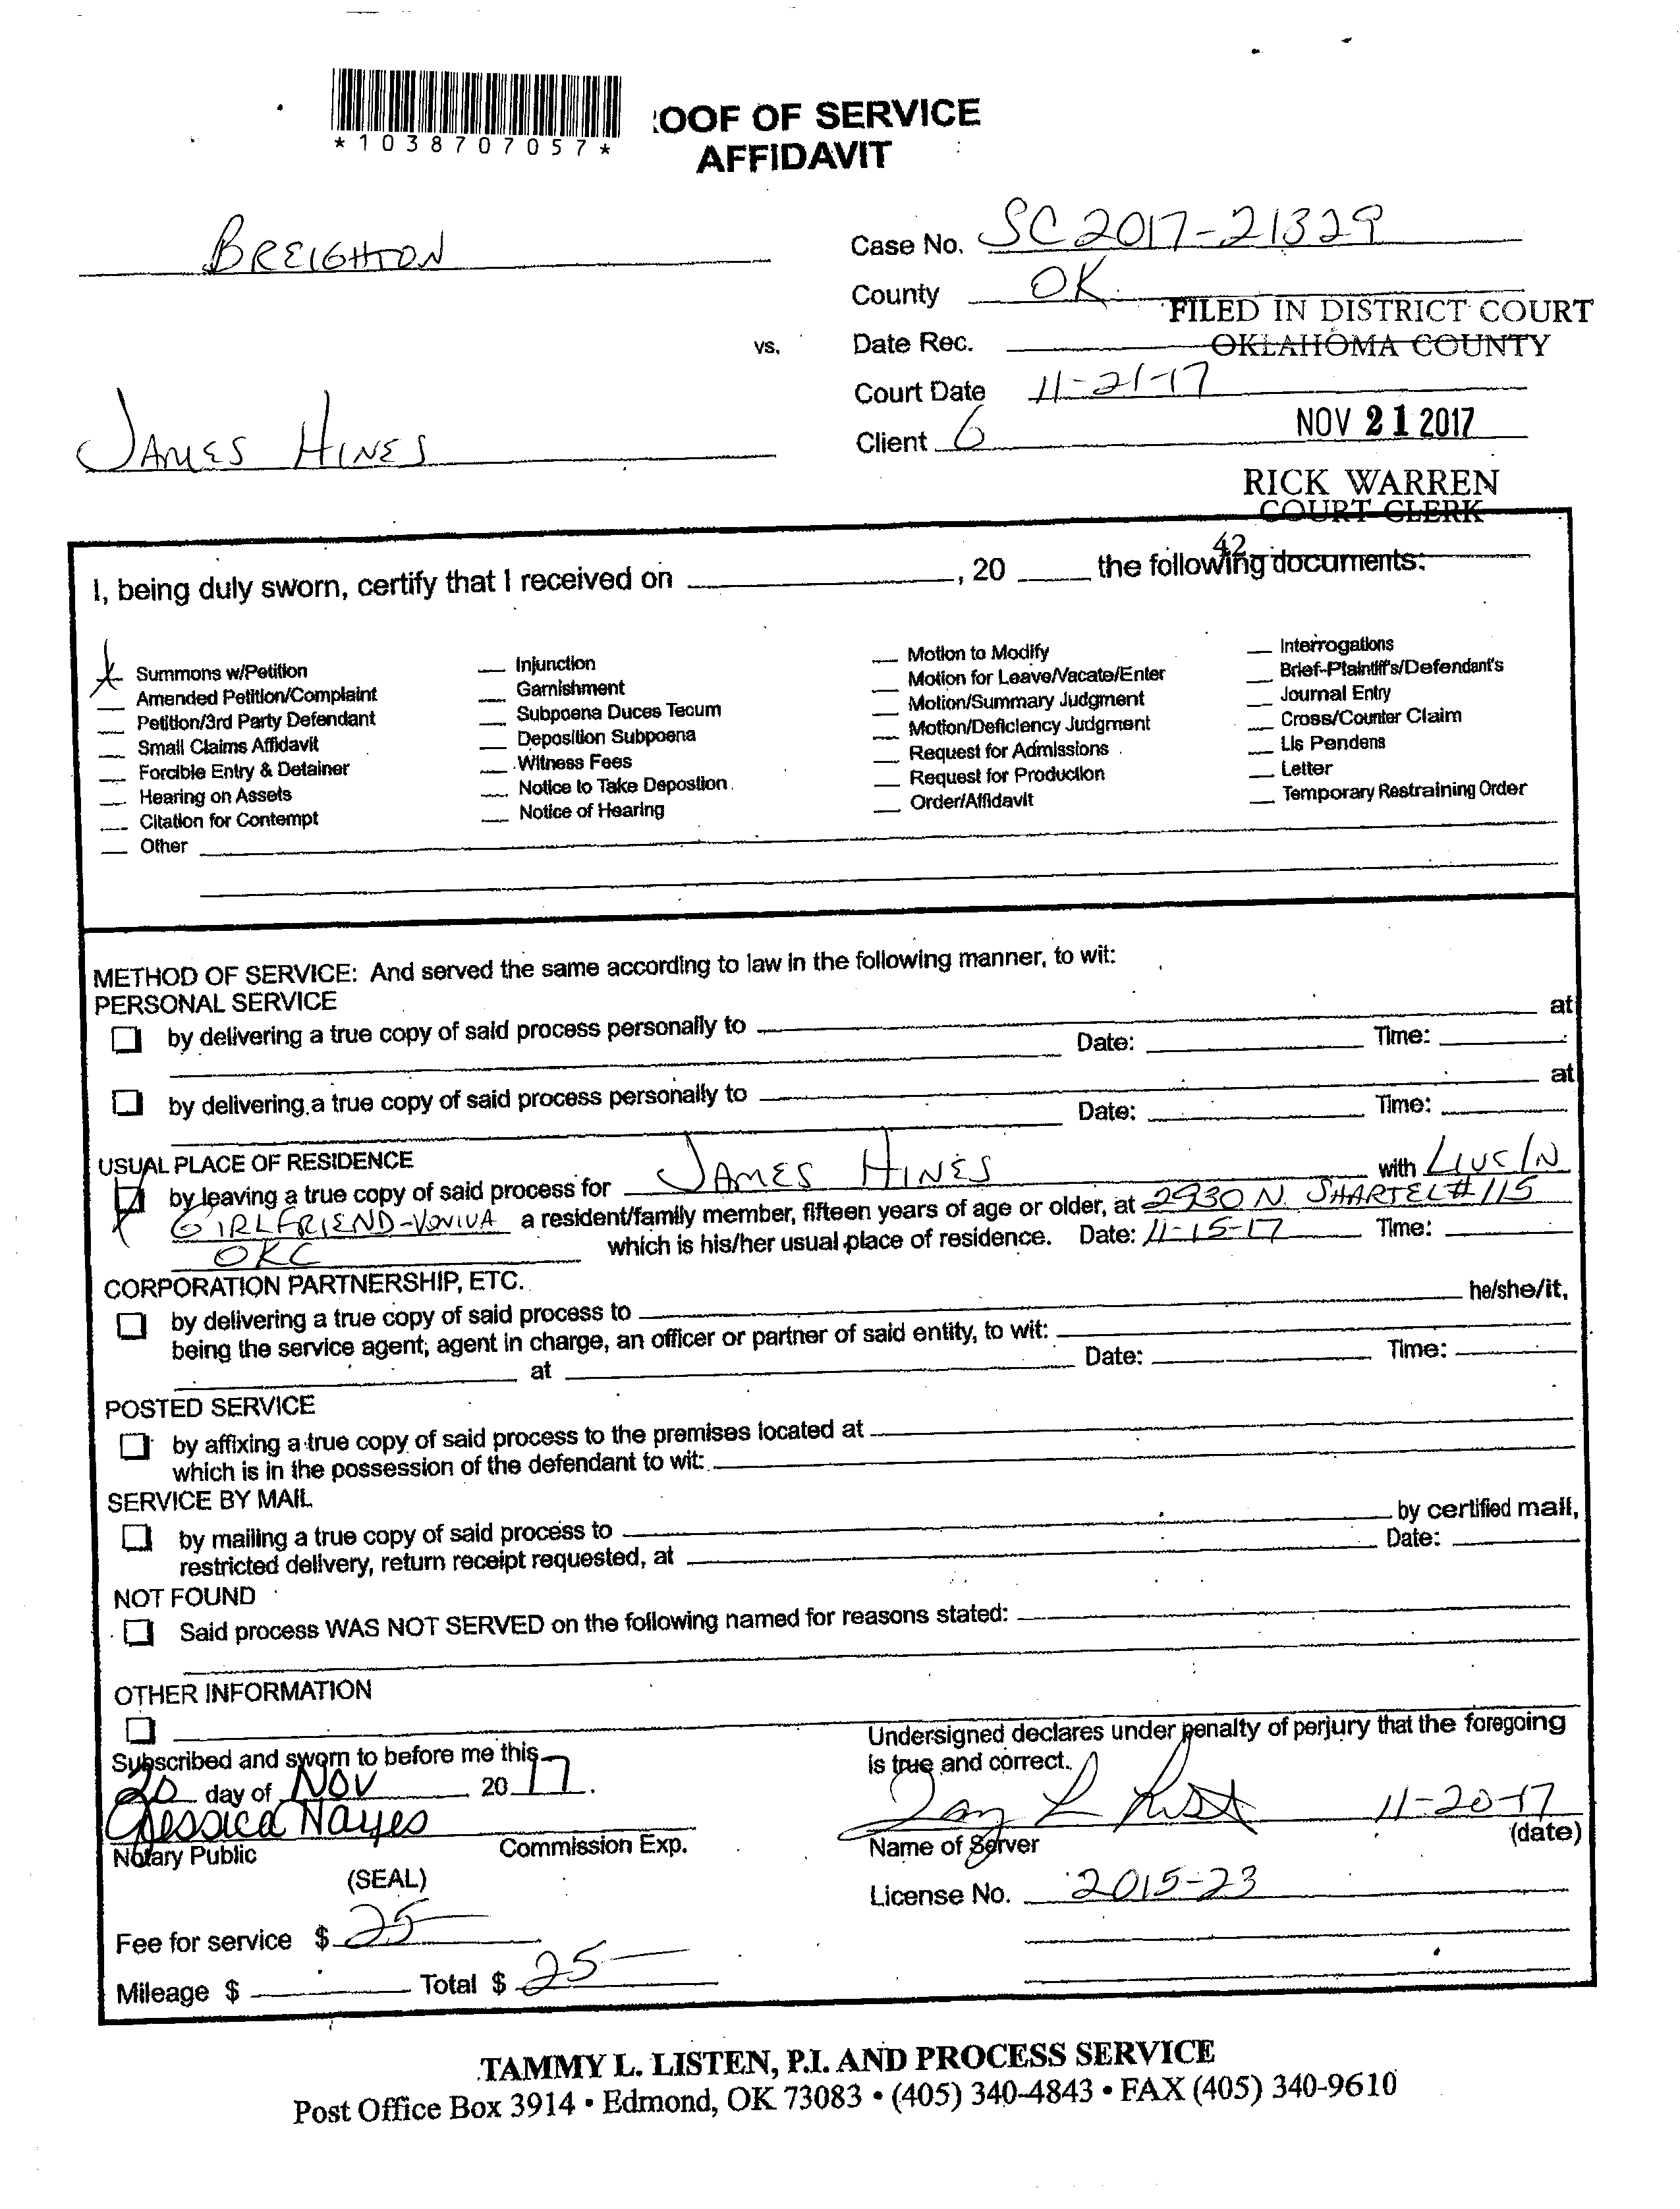 *1038707057*
OOF OF SERVICE
AFFIDAVIT
BREIGHTON
Case No. SC2017-21329
County OK
FILED IN DISTRICT COURT
OKLAHOMA COUNTY
vs.
Date Rec.
Court Date 11-21-17
JAMES HINES
Client 6
NOV 21 2017
RICK WARREN
COURT CLERK
42
I, being duly sworn, certify that I received on ____, 20 ____ the following documents:
Summons w/Petition
Amended Petition/Complaint
Petition/3rd Party Defendant
Small Claims Affidavit
Forcible Entry & Detainer
Hearing on Assets
Citation for Contempt
Other
Injunction
Garnishment
Subpoena Duces Tecum
Deposition Subpoena
Witness Fees
Notice to Take Depostion
Notice of Hearing
Motion to Modify
Motion for Leave/Vacate/Enter
Motion/Summary Judgment
Motion/Deficiency Judgment
Request for Admissions
Request for Production
Order/Affidavit
Interrogations
Brief-Plaintiff's/Defendant's
Journal Entry
Cross/Counter Claim
Lis Pendens
Letter
Temporary Restraining Order
METHOD OF SERVICE: And served the same according to law in the following manner, to wit:
PERSONAL SERVICE
by delivering a true copy of said process personally to ____ at
Date: ____ Time: ____
by delivering a true copy of said process personally to ____ at
Date: ____ Time: ____
USUAL PLACE OF RESIDENCE
by leaving a true copy of said process for JAMES HINES with LIVE IN
GIRLFRIEND-VONIVA a resident/family member, fifteen years of age or older, at 2930 N. SHARTEL #115
OKC which is his/her usual place of residence. Date: 11-15-17 Time: ____
CORPORATION PARTNERSHIP, ETC.
by delivering a true copy of said process to ____ he/she/it,
being the service agent; agent in charge, an officer or partner of said entity, to wit: ____
____ at ____ Date: ____ Time: ____
POSTED SERVICE
by affixing a true copy of said process to the premises located at ____
which is in the possession of the defendant to wit: ____
SERVICE BY MAIL
by mailing a true copy of said process to ____ by certified mail,
restricted delivery, return receipt requested, at ____ Date: ____
NOT FOUND
Said process WAS NOT SERVED on the following named for reasons stated: ____
OTHER INFORMATION
Subscribed and sworn to before me this
20 day of NOV 2017.
Jessica Nayes
Notary Public Commission Exp.
(SEAL)
Fee for service $ 25
Mileage $ ____ Total $ 25
Undersigned declares under penalty of perjury that the foregoing
is true and correct.
11-20-17
Name of Server (date)
License No. 2015-23
TAMMY L. LISTEN, P.I. AND PROCESS SERVICE
Post Office Box 3914 • Edmond, OK 73083 • (405) 340-4843 • FAX (405) 340-9610